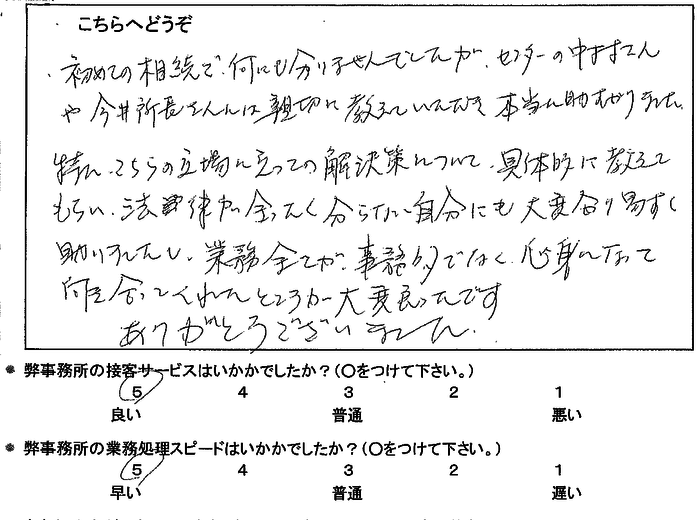 こちらへどうぞ
初めての相続で、何にも分りませんでしたが、センターの中村さん
や今井所長さんには親切に教えていただき本当に助かりました。
特に、こちらの立場に立っての解決策について、具体的に教えて
もらい、法律が全たく分らない自分にも大変分り易すく
助りましたし、業務全てが、事務的でなく、心身になって
向き合ってくれたところが大変良ったです
ありがとうございました。
● 弊事務所の接客サービスはいかかでしたか？(○をつけて下さい。)
5 4 3 2 1
良い 普通 悪い
● 弊事務所の業務処理スピードはいかかでしたか？(○をつけて下さい。)
5 4 3 2 1
早い 普通 遅い